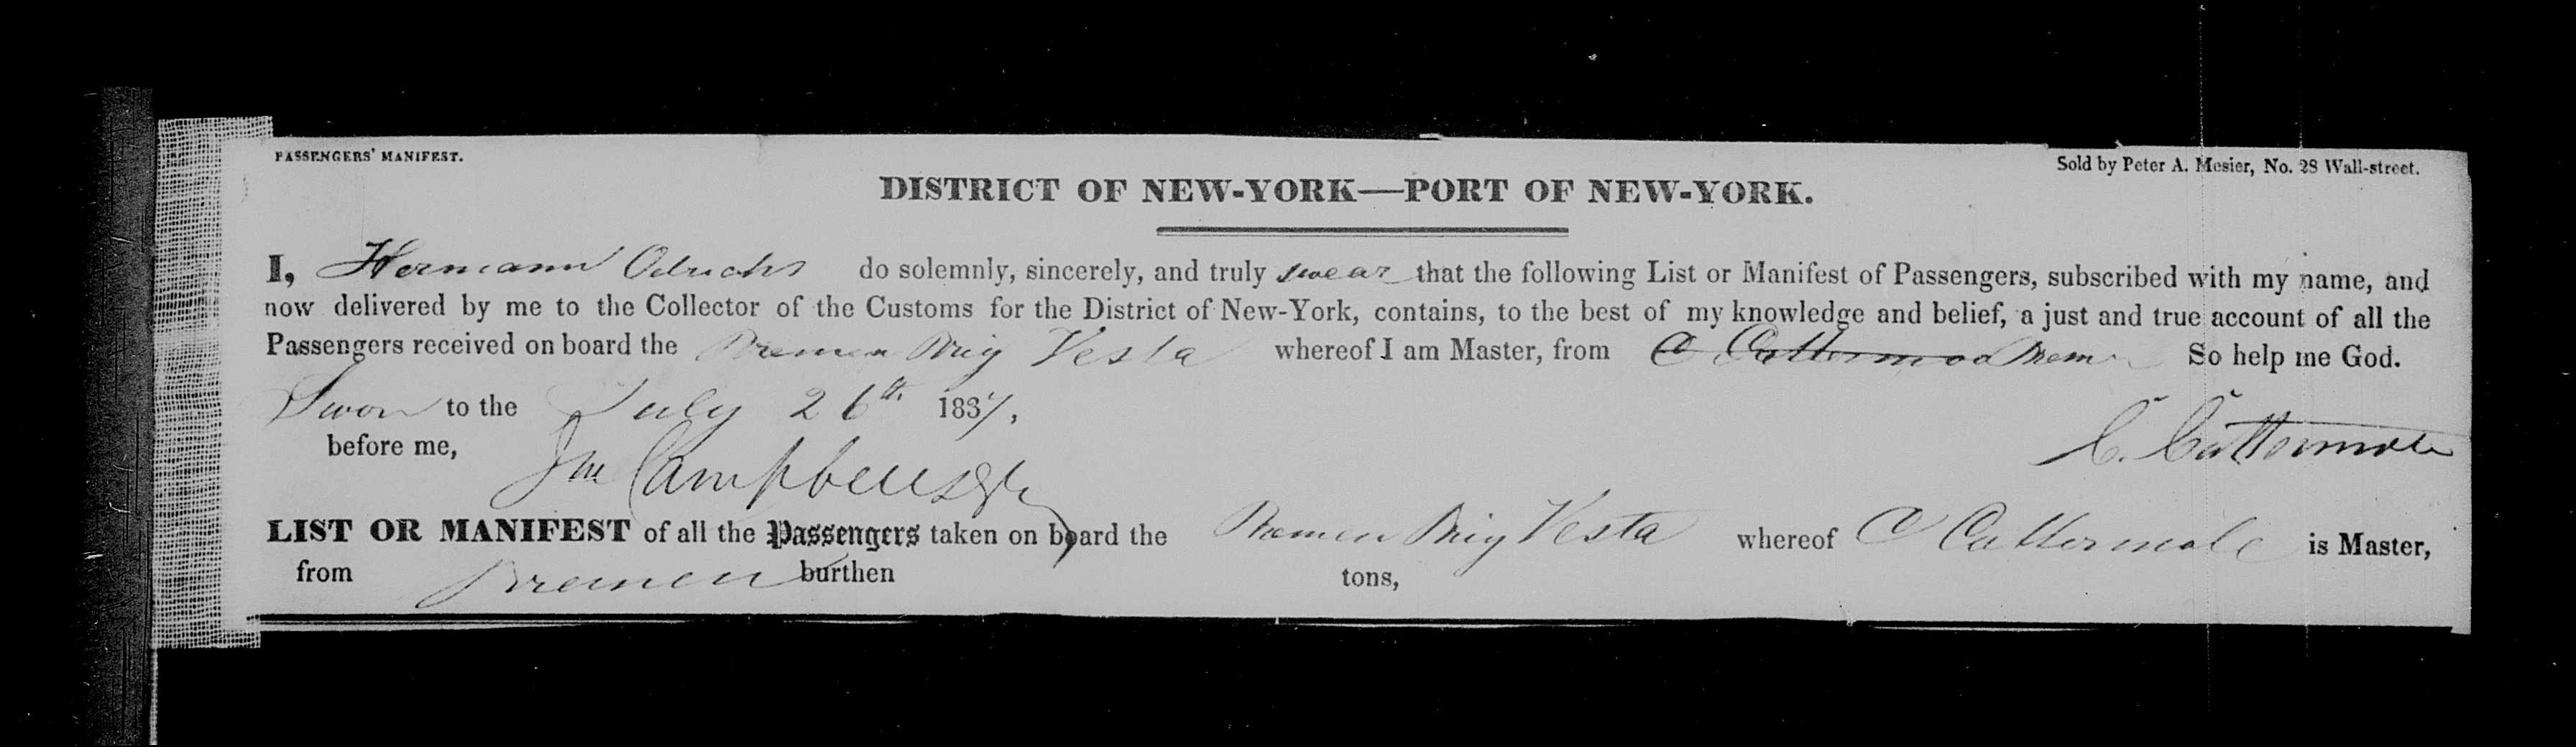 PASSENGERS' MANIFEST.
Sold by Peter A. Mesier, No. 28 Wall-street.
DISTRICT OF NEW-YORK—PORT OF NEW-YORK.
I, Hermann Oelrichs do solemnly, sincerely, and truly swear that the following List or Manifest of Passengers, subscribed with my name, and
now delivered by me to the Collector of the Customs for the District of New-York, contains, to the best of my knowledge and belief, a just and true account of all the
Passengers received on board the Bremen Brig Vesta whereof I am Master, from C Cattermo Bremen So help me God.
Swon to the July 26th 1837.
before me,
C. Cattermole
Jno Campbell
LIST OR MANIFEST of all the Passengers taken on board the Bremen Brig Vesta whereof C Cattermole is Master,
from Bremen burthen tons,